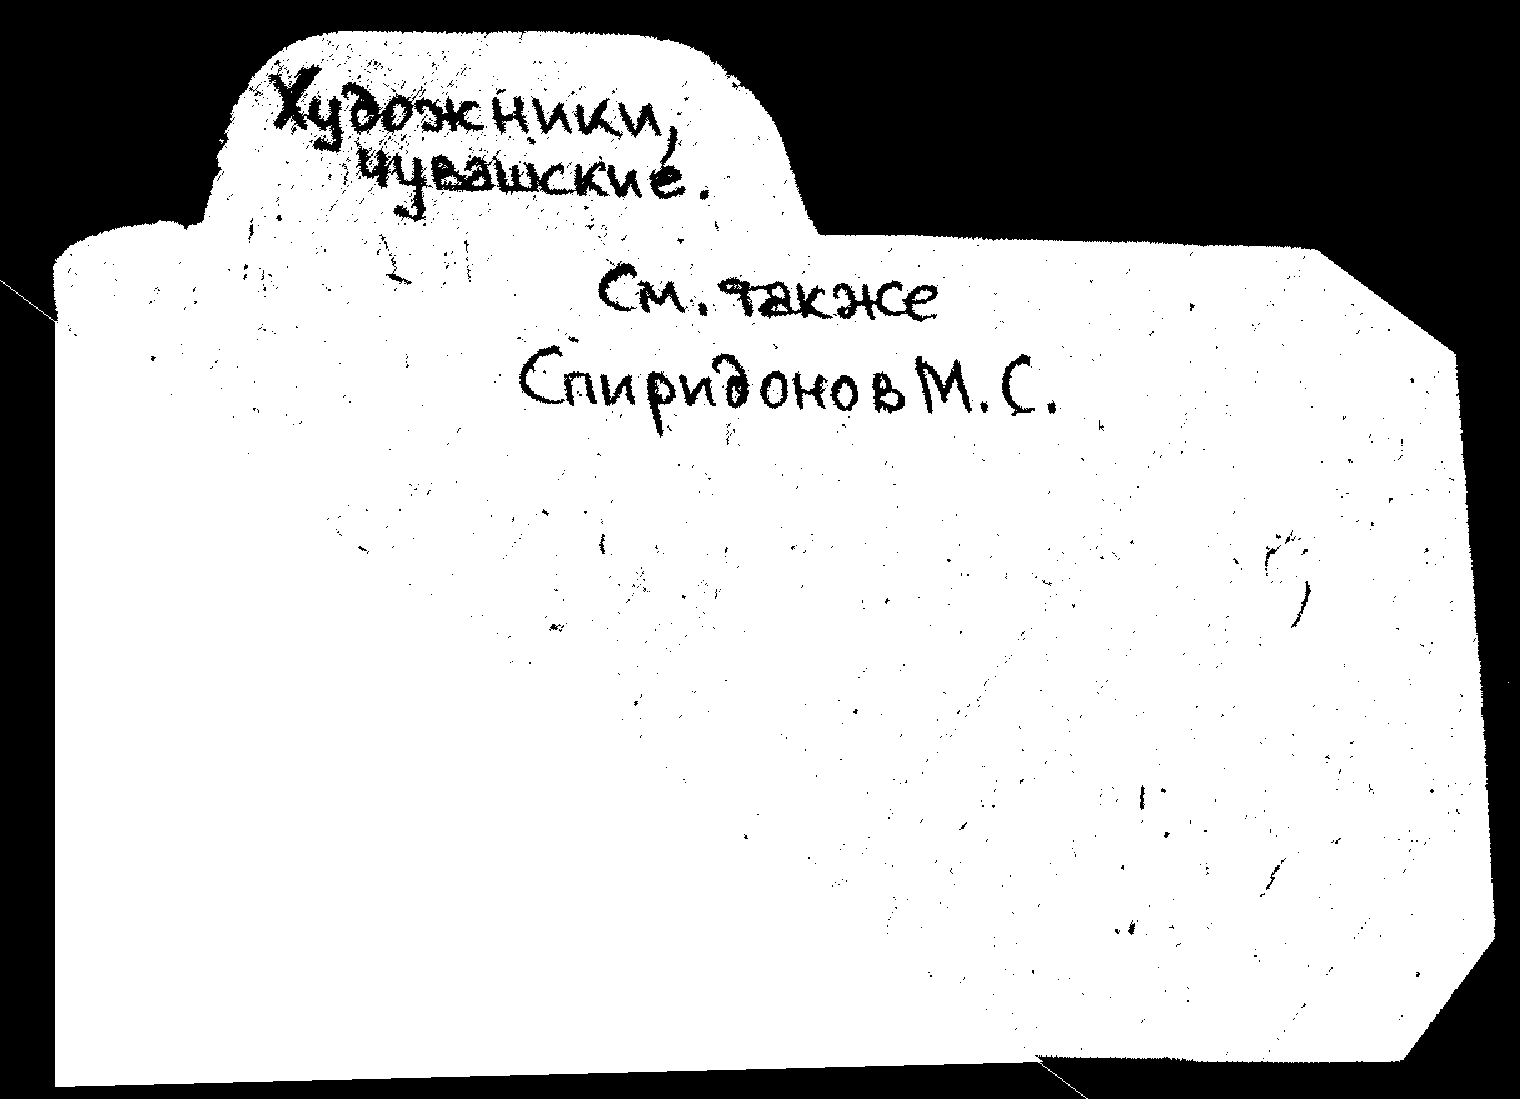 Художники,
чувашские.
См. также
Спиридонов М. С.